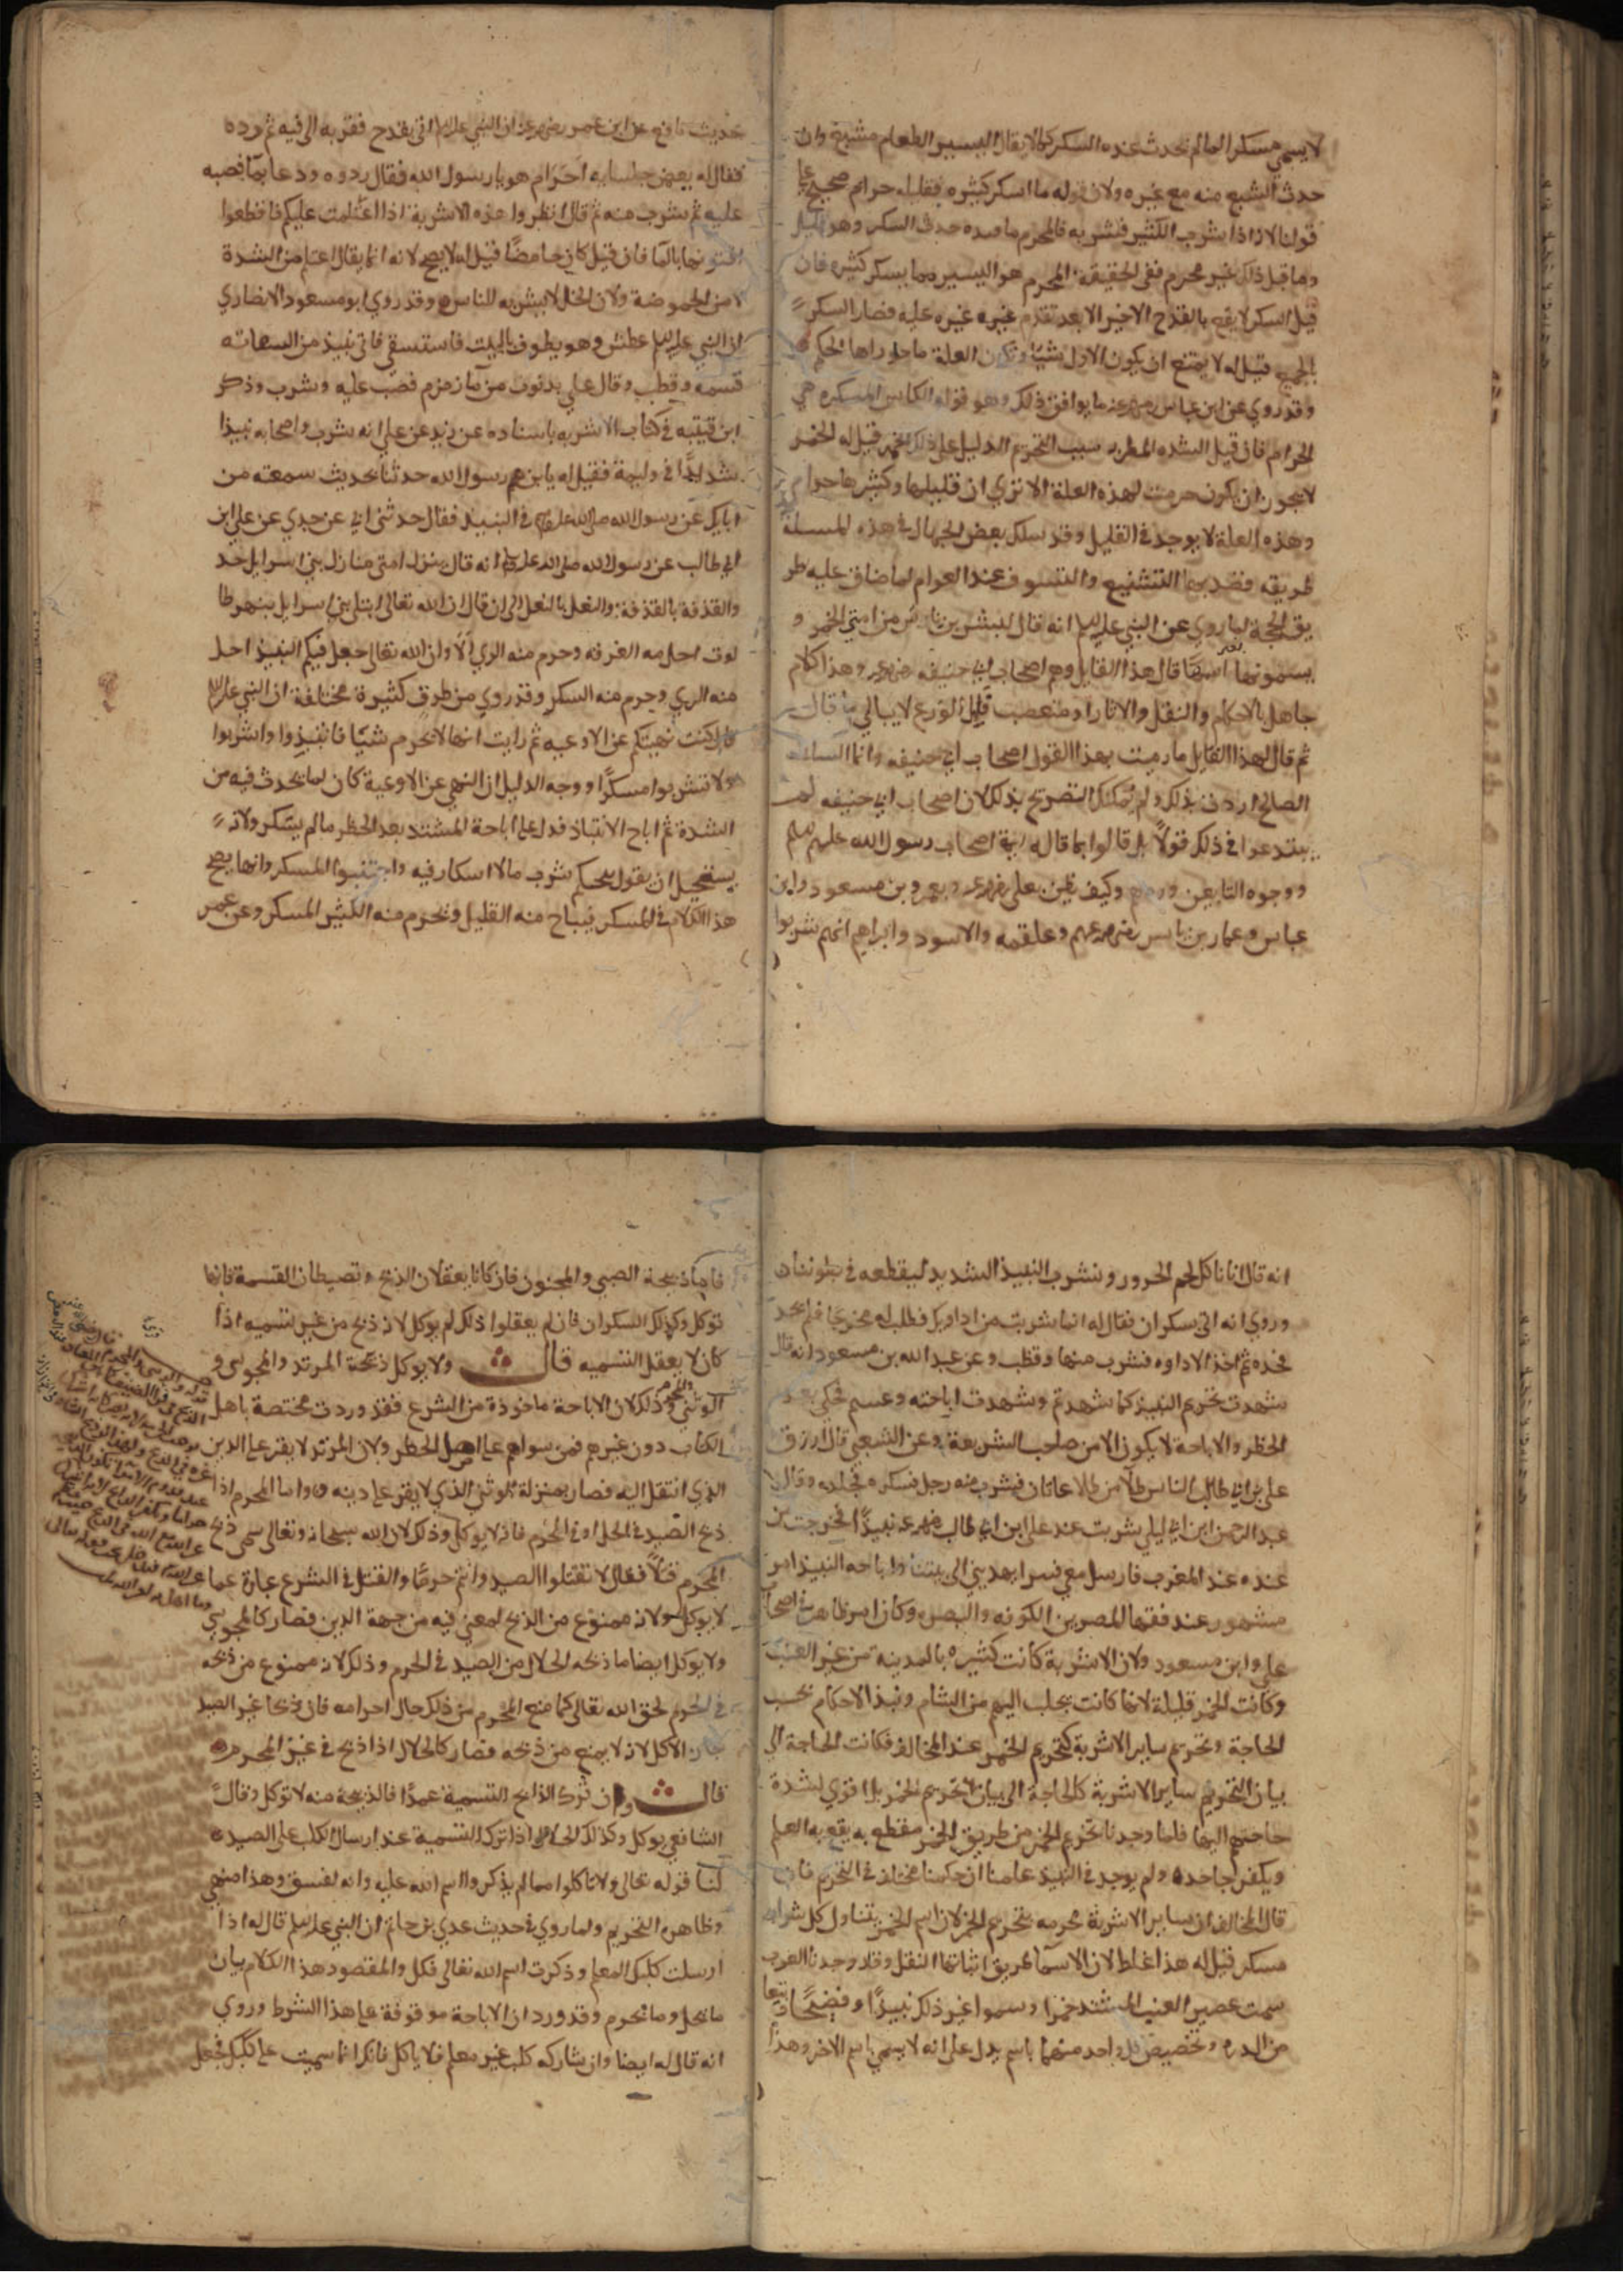 لا يسمي مسكرا لما لم يحدث عنده السكر كما لا يقال اليسير الطعام مشبع وان
حدث الشبع منه مع غيره ولان قوله ما اسكر كثيره فقليله حرام صحيح علي
قولنا لانه اذا شرب الكثير فشربه فالمحرم ما عنده حدث السكر وهو قليل
وما قبل ذلك غير محرم ففي الحقيقة المحرم هو اليسير مما يسكر كثيره فان
قيل السكر لا يقع بالقدح الاخير الا بعد تقدم غيره عليه فصار السكر
بالجميع قيل له لا يمتنع ان يكون الاول شيئا وتكون العلة ما جاوراها الحكم
وقد روي عن ابن عباس رضي الله عنه ما يوافق ذلك وهو قوله الكاس المسكره هي
الحرام فان قيل الشده المطربه سبب التحريم الدليل علي ذلك الخمر قيل له الخمر
لا يجوز ان يكون حرمت لهذه العلة الا تري ان قليلها وكثيرها حرام
وهذه العلة لا يوجد في القليل وقد سلك بعض الجهال في هذه المسلة
طريقه فقصد بها التشنيع والتسوف عند العوام لما ضاق عليه طر
يق الحجة لما روي عن النبي عليه السلم انه قال ليشربن ناس من امتي الخمر و
يسمونها بغير اسمها قال هذا القايل وهم اصحاب ابي حنيفه وهذا كلام
جاهل بالاحكام والنقل والاثار او متعصب قليل الورع لا يبالي ما قال
ثم قال لهذا القايل ما رميت بهذا القول اصحاب ابي حنيفه وانما السلف
الصالح اردت بذلك ولم يمكنك التصريح بذلك لان اصحاب ابي حنيفه لم
يبتدعوا في ذلك قولاً بل قالوا بما قاله اصحاب رسول الله عليه السلم
ووجوه التابعين وكيف يظن بعلي وبعمر وبن مسعود وابن
عباس وعمار بن ياسر رضي الله عنهم وعلقمه والاسود وابراهيم انهم شربوا
حديث نافع عن ابن عمر رضي الله عنه ان النبي عليه السلم اتي بقدح فقربه الي فيه ثم رده
فقال له بعض جلسايه احرام هو يا رسول الله فقال ردوه ودعا بمآ فصبه
عليه ثم شرب منه ثم قال انظروا هذه الاشربة اذا اغتلمت عليكم فاقطعوا
متونها بالمآ فان قيل كان حامضًا قيل له لا يصح لانه انما يقال اغتلم من الشدة
لا من الحموضة ولان الخل لا يشربه للناس وقد روي ابو مسعود الانصاري
ان النبي عليه السلم عطش وهو يطوف بالبيت فاستسقي فاتي بنبيذ من السقايه
فشمه وقطب وقال علي بذنوب من مآ زمزم فصب عليه وشرب وذكر
ابن قتيبه في كتاب الاشربه باسناده عن زيد عن علي انه شرب واصحابه نبيذا
شديدًا في وليمة فقيل له يا بن رسول الله حدثنا بحديث سمعته من
ابايك عن رسول الله صلي الله عليه في النبيذ فقال حدثني ابي عن جدي عن علي ابن
ابي طالب عن رسول الله صلي الله عليه انه قال ينزل امتي منازل بني اسرايل حذ
والقذفة بالقذفة والنعل بالنعل الي ان قال ان الله تعالي ابتلي بني اسرايل بنهر طا
لوت احل منه الغرفه وحرم منه الري الا وان الله تعالي جعل فيكم النبيذ احل
منه الري وحرم منه السكر وقد روي من طرق كثيرة مختلفة ان النبي عليه السلم
قال كنت نهيتكم عن الاوعيه ثم رايت انها لا تحرم شيًا فانتبذوا واشربوا
ولا تشربوا مسكرًا ووجه الدليل ان النهي عن الاوعية كان لما يحدث فيه من
الشدة ثم اباح الانتباذ فدل علي اباحة المشتد بعد الحظر ما لم يسكر ولانه
يستحيل ان يقول يحكم شرب ما لا اسكار فيه واجتنبوا المسكر وانما يصح
هذا الكلام في المسكر فيباح منه القليل ويحرم منه الكثير المسكر وعن عمر
انه قال انا ناكل لحم الجزور ونشرب النبيذ الشديد ليقطعه في بطوننا
وروي انه اتي سكران فقال له انما شربت من اداوتك فطلب له مخرجا فلم يجد
فحده ثم اخذ الاداوه فشرب منها وقطب وعن عبد الله بن مسعود انه قال
شهدت تحريم النبيذ كما شهدتم وشهدت اباحته
الحظر والاباحة لا يكون الا من صاحب الشريعة وعن الشعبي قال ارزق
علي بن ابي طالب الناس طلآ من طلا عانات فشرب منه رجل فسكر فجلده وقال
عبد الرحمن ابن ابي ليلي شربت عند علي ابن ابي طالب نبيذًا فخرجت من
عنده عند المغرب فارسل معي قنبرا يهديني الي بيتنا واباحه النبيذ امر
مشهور عند فقها المصرين الكوفه والبصره وكان امر ظاهر في اصحاب
علي وابن مسعود ولان الاشربة كانت كثيره بالمدينه من غير العنب
وكانت الخمر قليلة لانها كانت يجلب اليهم من الشام ونبذ الاحكام بحسب
الحاجة وتحريم ساير الاشربة كتحريم الخمر عند المخالف فكانت الحاجة الي
بيان التحريم ساير الاشربة كالحاجة الي بيان تحريم الخمر بل اقوي لشدة
حاجتهم اليها فلما وجدنا تحريم الخمر من طريق الخبر مقطع به يقع به العلم
ويكفر جاحده ولم يوجد في النبيذ علمنا ان حكمنا مختلف في التحريم فان
قال المخالف ان ساير الاشربة محرمه بتحريم الخمر لان اسم الخمر يتناول كل شراب
مسكر قيل له هذا غلط لان الاسمآ طريق اثباتها النقل وقد وجدنا العرب
سمت عصير العنب المشتد خمرا وسموا غير ذلك نبيذًا وفضيخًا وبتعا
من الذره وتخصيص كل واحد منهما باسم يدل علي انه لا يسمي باسم الاخر وهذا
فاما ذبيحة الصبي والمجنون فان كانا يعقلان الذبح ويضبطان التسمة فانها
توكل وكذلك السكران فان لم يعقلوا ذلك لم يوكل لانه ذبح من غير تسميه اذا
كان لا يعقل التسميه قال ولا يوكل ذبيحة المرتد والمجوسي و
الوثني والمحرم وذلك لان الاباحة ماخوذة من الشرع فقد وردت مختصة باهل
الكتاب دون غيرهم فمن سواهم علي اصل الحظر ولان المرتد لا يقر علي الدين
الذي انتقل اليه فصار بمنزلة الوثني الذي لا يقر علي دينه واما المحرم اذا
ذبح الصيد في الحل او في الحرم فانه لا يوكل وذلك لان الله سبحانه وتعالي سمي ذبح
المحرم قتلًا فقال لا تقتلوا الصيد وانتم حرمًا والقتل في الشرع عبارة عما
لا يوكل ولانه ممنوع من الذبح لمعني فيه من جهة الدين فصار كالمجوسي
ولا يوكل ايضا ما ذبحه الحلال من الصيد في الحرم وذلك لانه ممنوع من ذبحه
في الحرم لحق الله تعالي كما منع المحرم من ذلك حال احرامه فان ذبحا غير الصيد
جاز الاكل لانه لا يمنع من ذبحه فصار كالحلال اذا ذبح في غير المحرم
قال وان ترك الذابح التسمية عمدًا فالذبيحة منه لا توكل وقال
الشافعي يوكل وكذلك الخلاف اذا ترك التسمية عند ارسال الكلب علي الصيد
لنا قوله تعالي ولا تاكلوا مما لم يذكروا اسم الله عليه وانه لفسق وهذا منهي
وظاهره التحريم ولما روي في حديث عدي بن حاتم ان النبي عليه السلم قال له اذا
ارسلت كلبك المعلم وذكرت اسم الله تعالي فكل والمقصود هذا الكلام بيان
ما يحل وما يحرم وقد ورد ان الاباحة موقوفة علي هذا الشرط وروي
انه قال له ايضا وان شاركه كلب غير معلم فلا ياكل فانك انما سميت علي كلبك فجعل